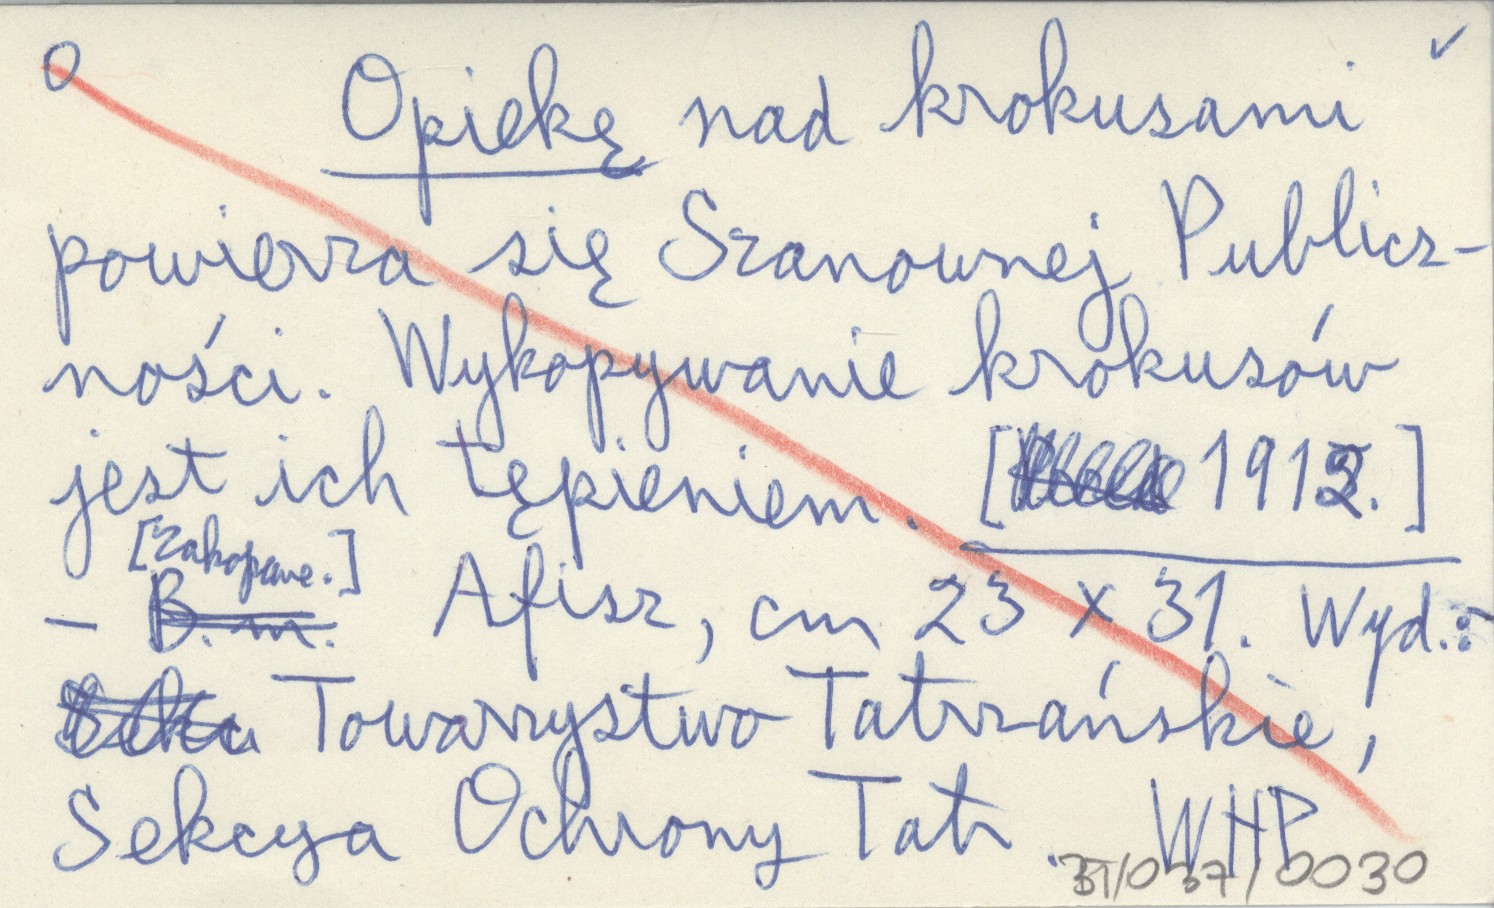 O Opiekę nad krokusami ✓
powierza się Szanownej Publicz-
ności. Wykopywanie krokusów
jest ich tępieniem. [1912.]
[Zakopane.]
– B. m. Afisz, cm 23 x 31. Wyd.:
Towarzystwo Tatrzańskie,
Sekcya Ochrony Tatr. WHP
/037/0030